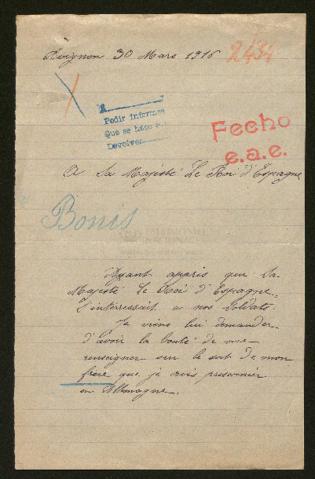 Avignon 30 Mars 1916
2434
Pedir informes
Que se hace
Devolver
Fecho
e.a.e.
A Sa Majesté Le Roi d'Espagne
Bonis
Ayant appris que Sa
Majesté Le Roi d'Espagne,
s'interressait a nos soldats.
Je viens lui demander
d'avoir la bonté de me
renseigner sur le sort de mon
frère que je crois prisonnier
en Allemagne.